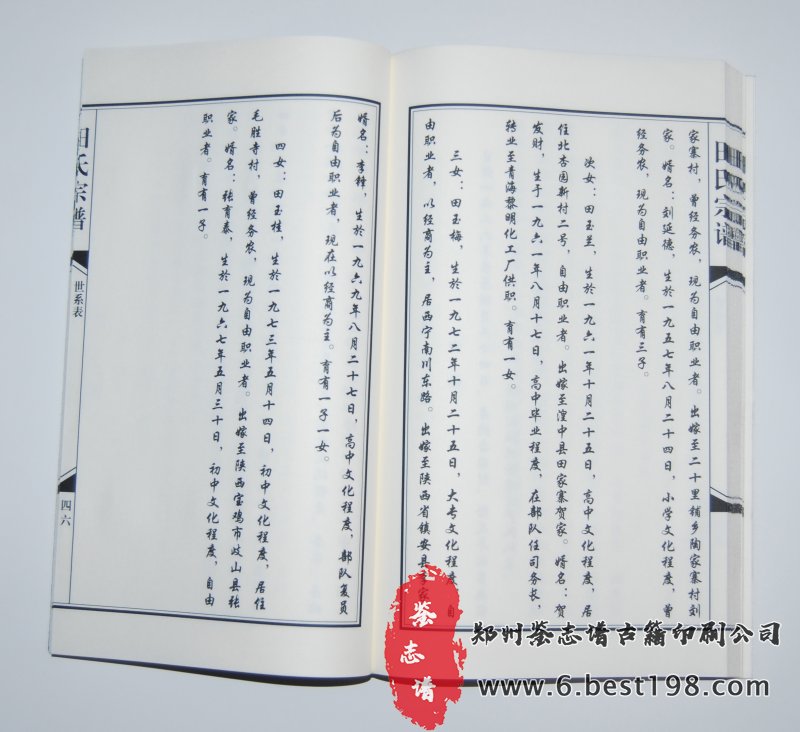 家寨村，曾经务农，现为自由职业者。出嫁至二十里铺乡陶家寨村刘
家。婿名：刘延德，生於一九五七年八月二十四日，小学文化程度，曾
经务农，现为自由职业者。育有三子。
次女：田玉兰，生於一九六一年十月二十五日，高中文化程度，居
住北杏园新村二号，自由职业者。出嫁至湟中县田家寨贺家。婿名：贺
发财，生于一九六一年八月十七日，高中毕业程度，在部队任司务长，
转业至青海黎明化工厂供职。育有一女。
三女：田玉梅，生於一九七二年十月二十五日，大专文化程度，自
由职业者，以经商为主，居西宁南川东路。出嫁至陕西省镇安县李家
婿名：李锋，生於一九六九年八月二十七日，高中文化程度，部队复员
后为自由职业者，现在以经商为主。育有一子一女。
四女：田玉桂，生於一九七三年五月十四日，初中文化程度，居住
毛胜寺村，曾经务农，现为自由职业者。出嫁至陕西宝鸡市岐山县张
家。婿名：张育泰，生於一九六七年五月三十日，初中文化程度，自由
职业者。育有一子。
田氏宗谱
世系表
四六
田氏宗谱
鉴志谱
郑州鉴志谱古籍印刷公司
www.6.best198.com